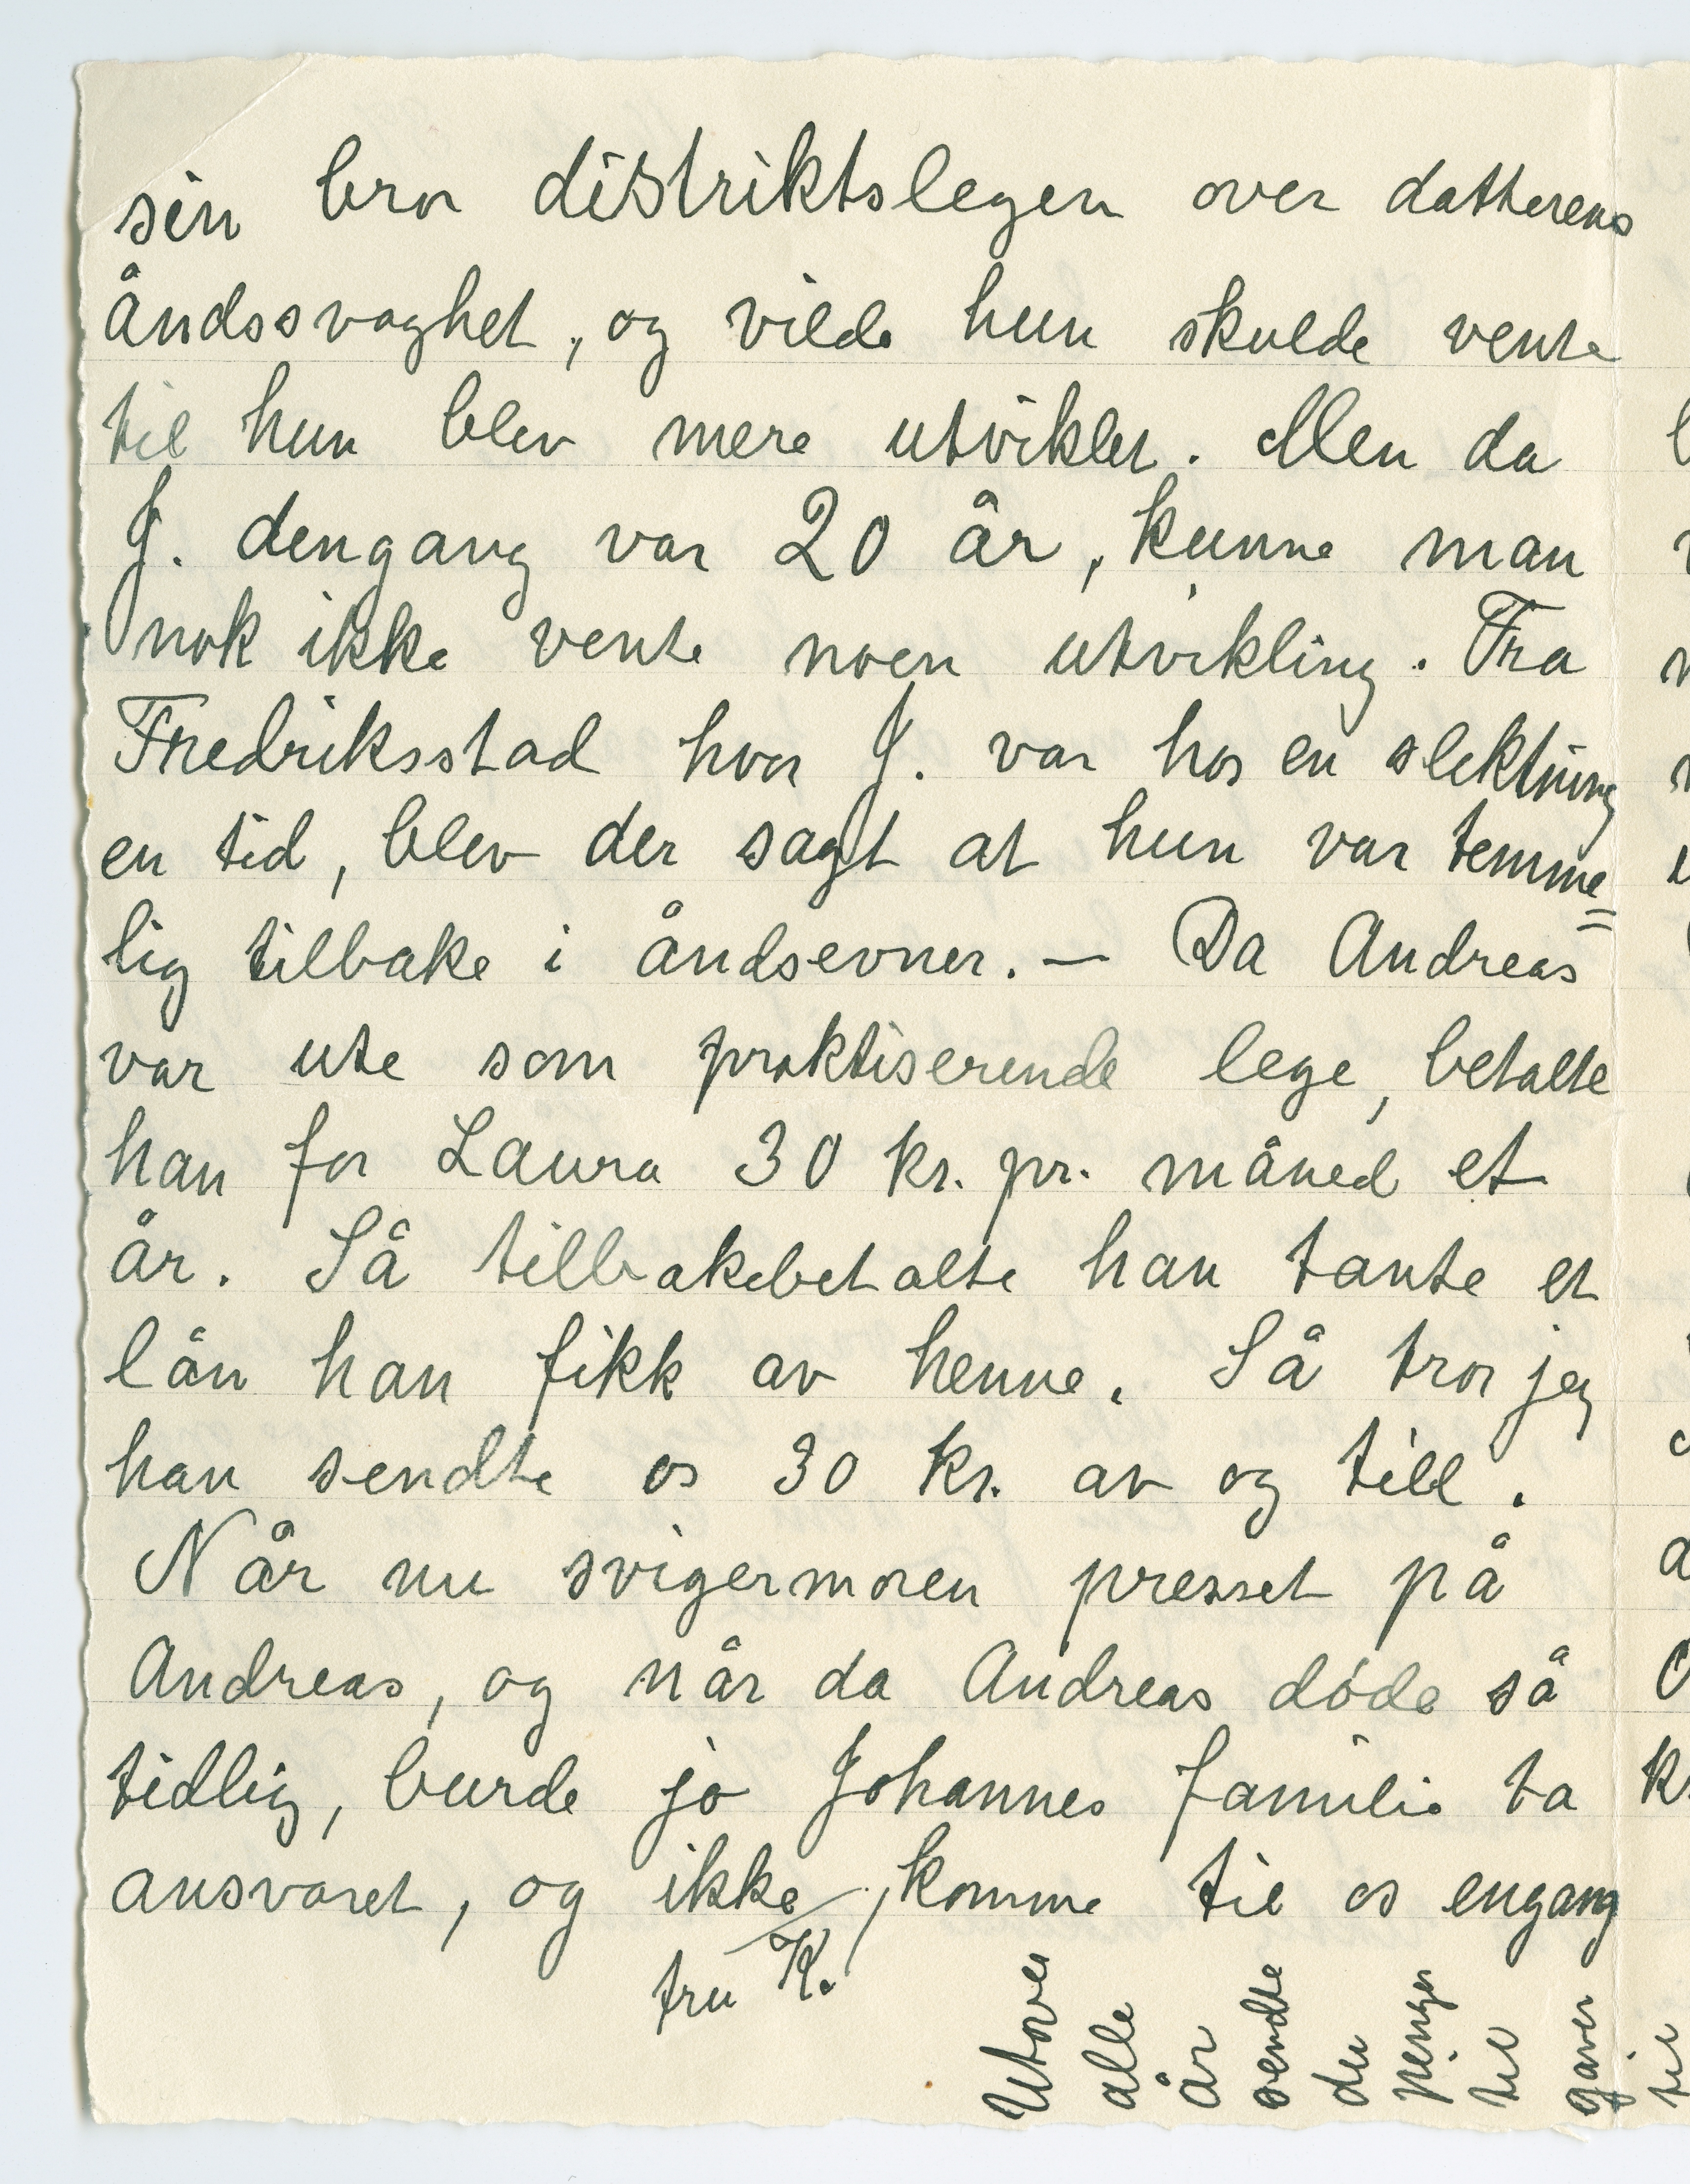 sin bror distriktslegen over datterens
åndssvaghet, og vilde hun skulde vente
til hun blev mere utviklet. Men da
J. dengang var 20 år, kunne man
nok ikke vente noen utvikling. Fra
Fredriksstad hvor J. var hos en slektning
en tid, blev der sagt at hun var temme=
lig tilbake i åndsevner. — Da Andreas
var ute som praktiserende lege, betalte
han for Laura 30 kr. pr. måned et
år. Så tilbakebetalte han tante et
lån han fikk av henne. Så tror jeg
han sendte os 30 kr. av og till.
Når nu svigermoren presset på
Andreas, og når da Andreas døde så
tidlig, burde jo Johannes familie ta
ansvaret, og ikke komme til os engang
fru K.
Utover
alle
år
sendte
du
penger
til
gaver
til